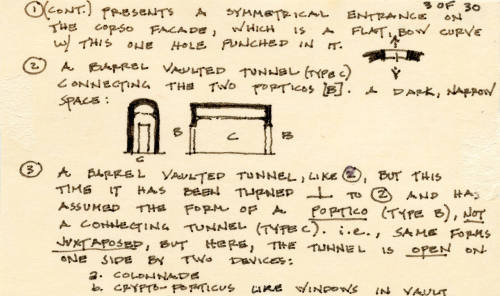 3 OF 30
① (CONT.) PRESENTS A SYMMETRICAL ENTRANCE ON
THE CORSO FACADE, WHICH IS A FLAT, BOW CURVE
W/ THIS ONE HOLE PUNCHED IN IT.
② A BARREL VAULTED TUNNEL (TYPE C)
CONNECTING THE TWO PORTICOS [B]. A DARK, NARROW
SPACE:
B C B
C
③ A BARREL VAULTED TUNNEL, LIKE ②, BUT THIS
TIME IT HAS BEEN TURNED ⊥ TO ② AND HAS
ASSUMED THE FORM OF A PORTICO (TYPE B), NOT
A CONNECTING TUNNEL (TYPE C). i.e., SAME FORMS
JUXTAPOSED, BUT HERE, THE TUNNEL IS OPEN ON
ONE SIDE BY TWO DEVICES:
a. COLONNADE
b. CRYPTO-PORTICUS LIKE WINDOWS IN VAULT